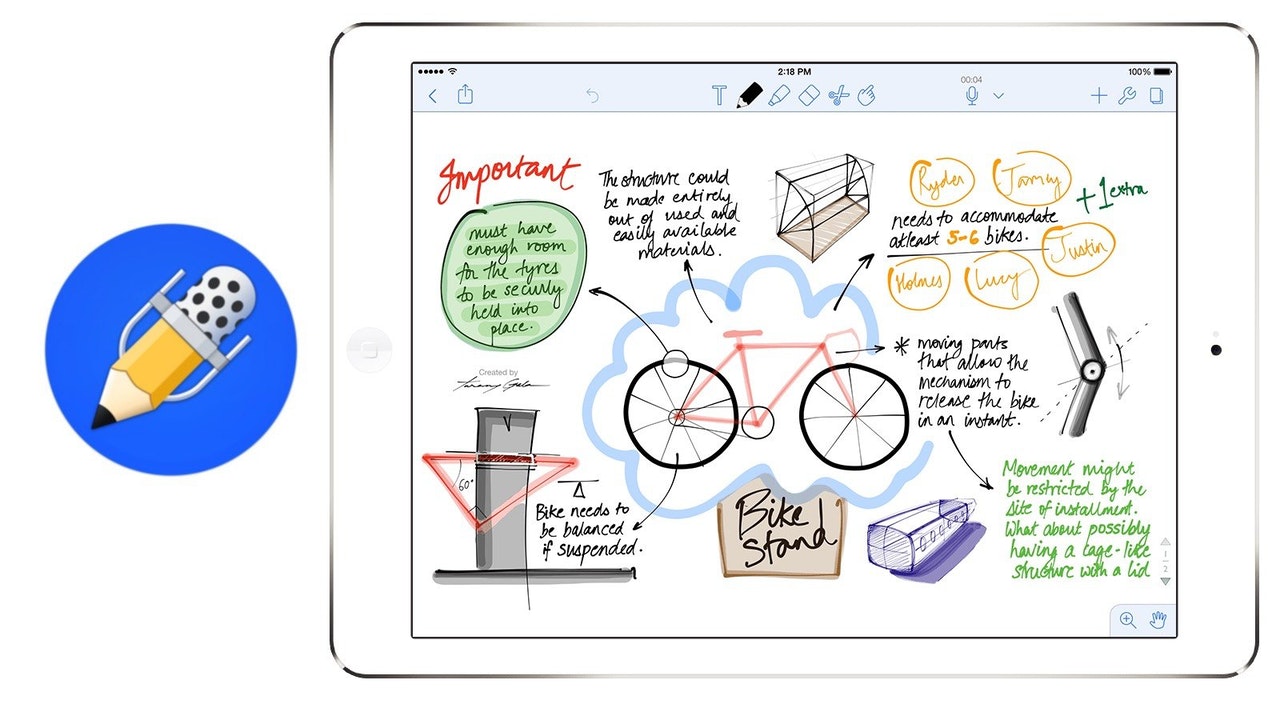 2:18 PM
100%
00:04
T
Important
must have
enough room
for the tyres
to be securly
held into
place.
The structure could
be made entirely
out of used and
easily available
materials.
Ryder
+1 extra
needs to accommodate
atleast 5-6 bikes.
Justin
Holmes
Lucy
* moving parts
that allow the
mechanism to
release the bike
in an instant.
Created by
60°
Bike needs to
be balanced
if suspended.
Bike
Stand
Movement might
be restricted by the
site of installment.
What about possibly
having a cage-like
structure with a lid
1
2